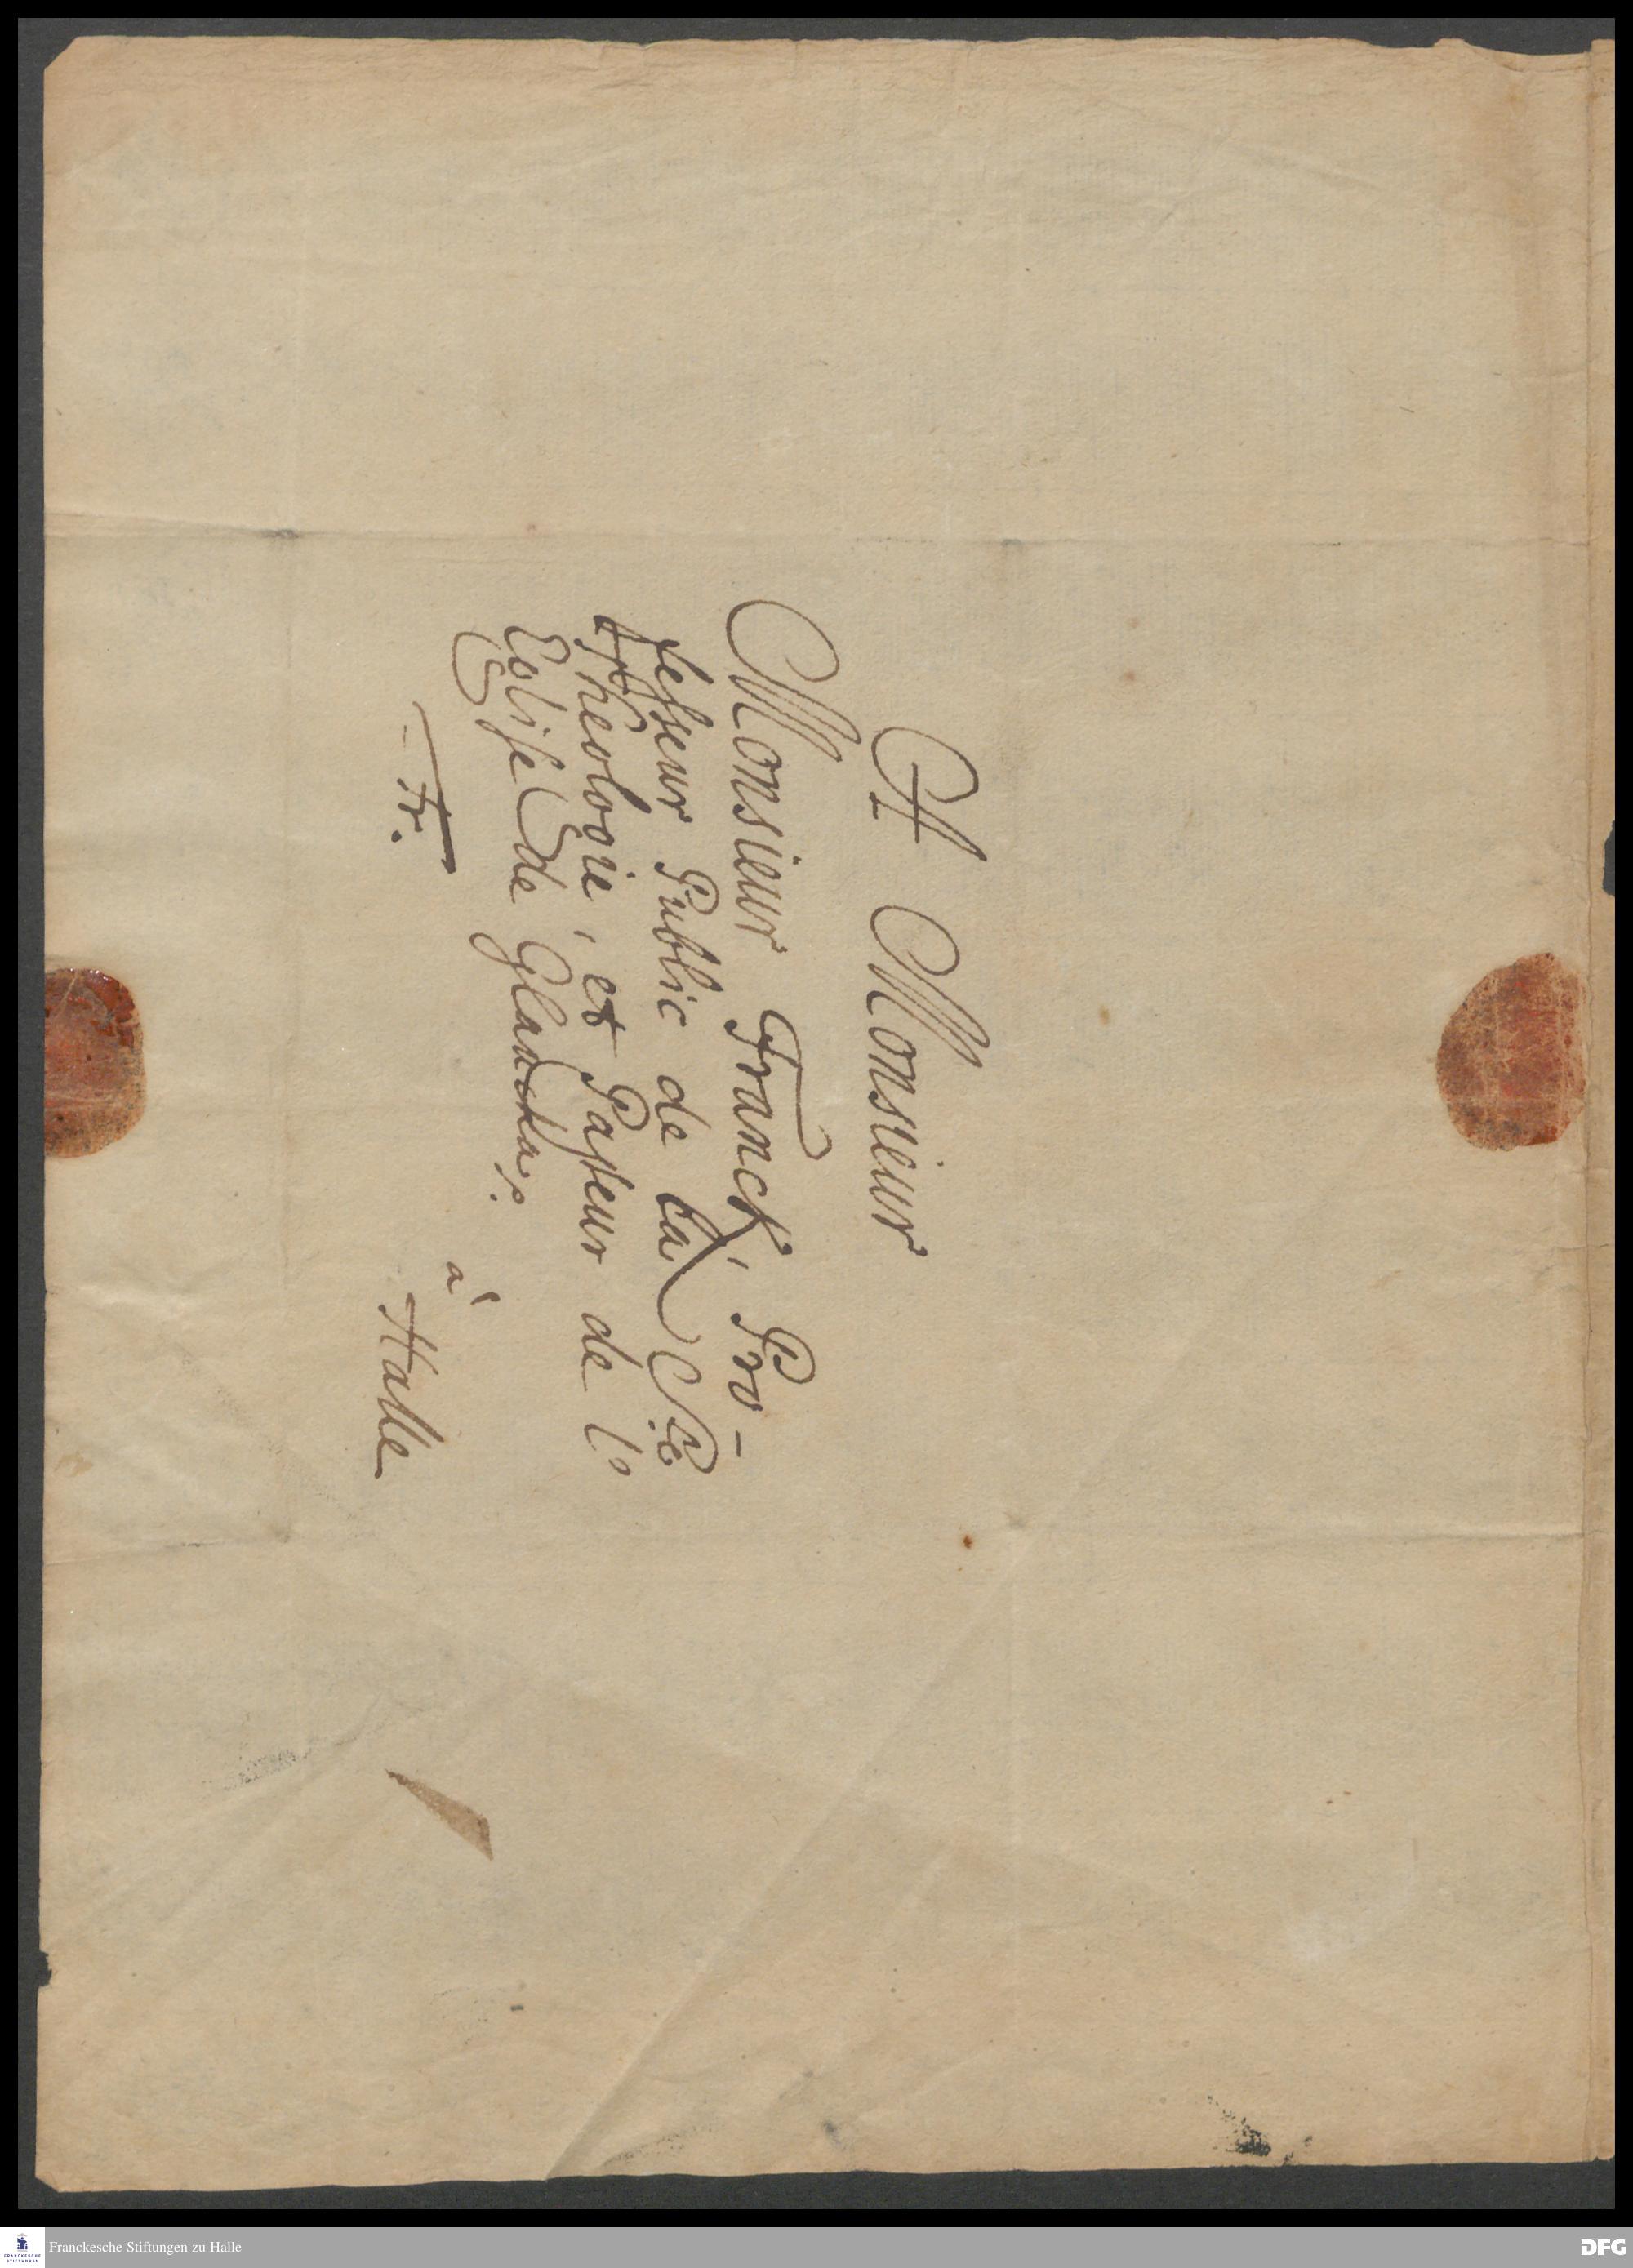 A Monsieur
Monsieur Franck, Pro-
fesseur Public de la S.te
Theologie, et Pasteur de l'
Eglise de Glaucha,
à
Halle
fr.
FRANCKESCHE
STIFTUNGEN
Franckesche Stiftungen zu Halle
DFG